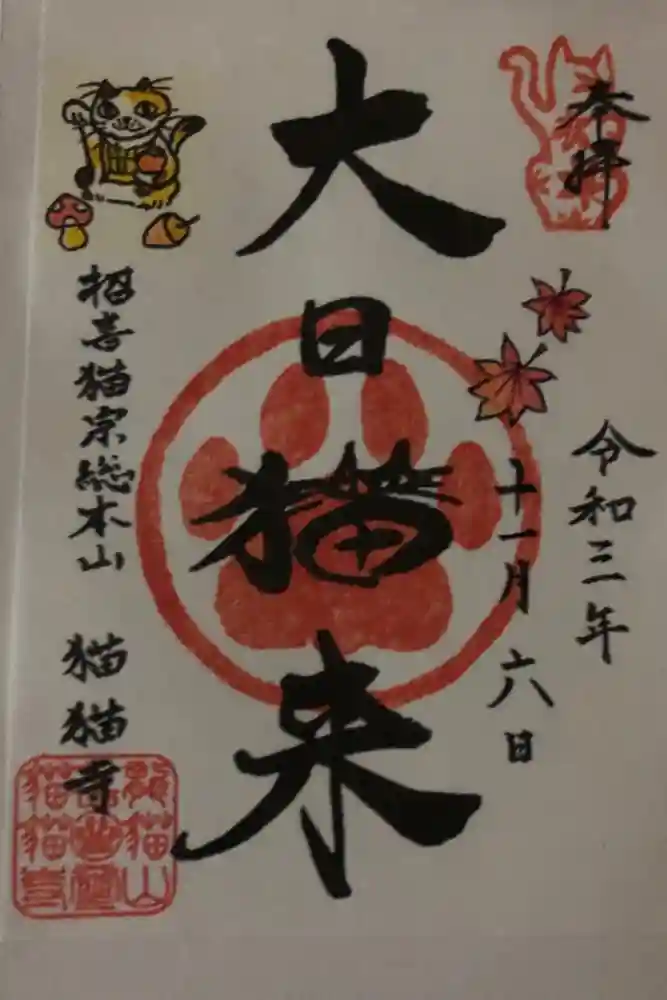 奉拝
令和三年
十一月六日
大日猫来
招喜猫宗総本山 猫猫寺